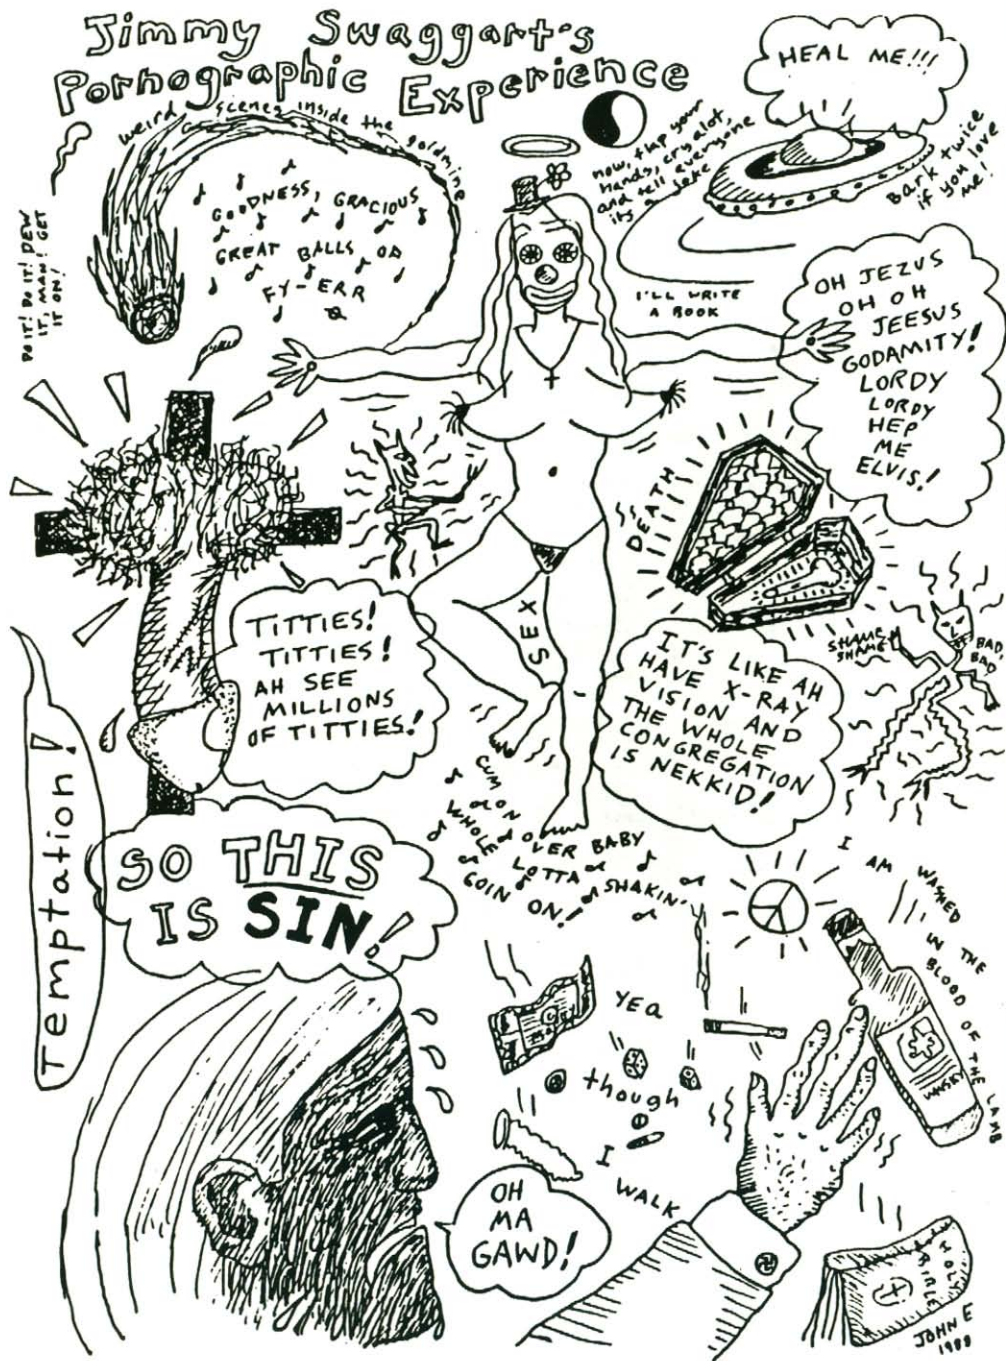 Jimmy Swaggart's
Pornographic Experience
weird scenes inside the goldmine
GOODNESS, GRACIOUS
GREAT BALLS OA
FY-ERR
DO IT! DO IT! DEW
IT, MAN! GET
IT ON!
now, flap your
hands, cry alot,
and tell everyone
its a joke
HEAL ME!!!
Bark twice
if you love
me!
I'LL WRITE
A BOOK
OH JEZUS
OH OH
JEESUS
GODAMITY!
LORDY
LORDY
HEP
ME
ELVIS!
DEATH
SEX
TITTIES!
TITTIES!
AH SEE
MILLIONS
OF TITTIES!
IT'S LIKE AH
HAVE X-RAY
VISION AND
THE WHOLE
CONGREGATION
IS NEKKID!
SHAME
SHAME
BAD,
BAD
Temptation!
SO THIS
IS SIN!
CUM
ON
OVER BABY
WHOLE LOTTA SHAKIN'
GOIN ON!
I AM WASHED
IN THE
BLOOD OF THE LAMB
YEA
though
I
WALK
OH
MA
GAWD!
HOLY
BIBLE
JOHN E
1988